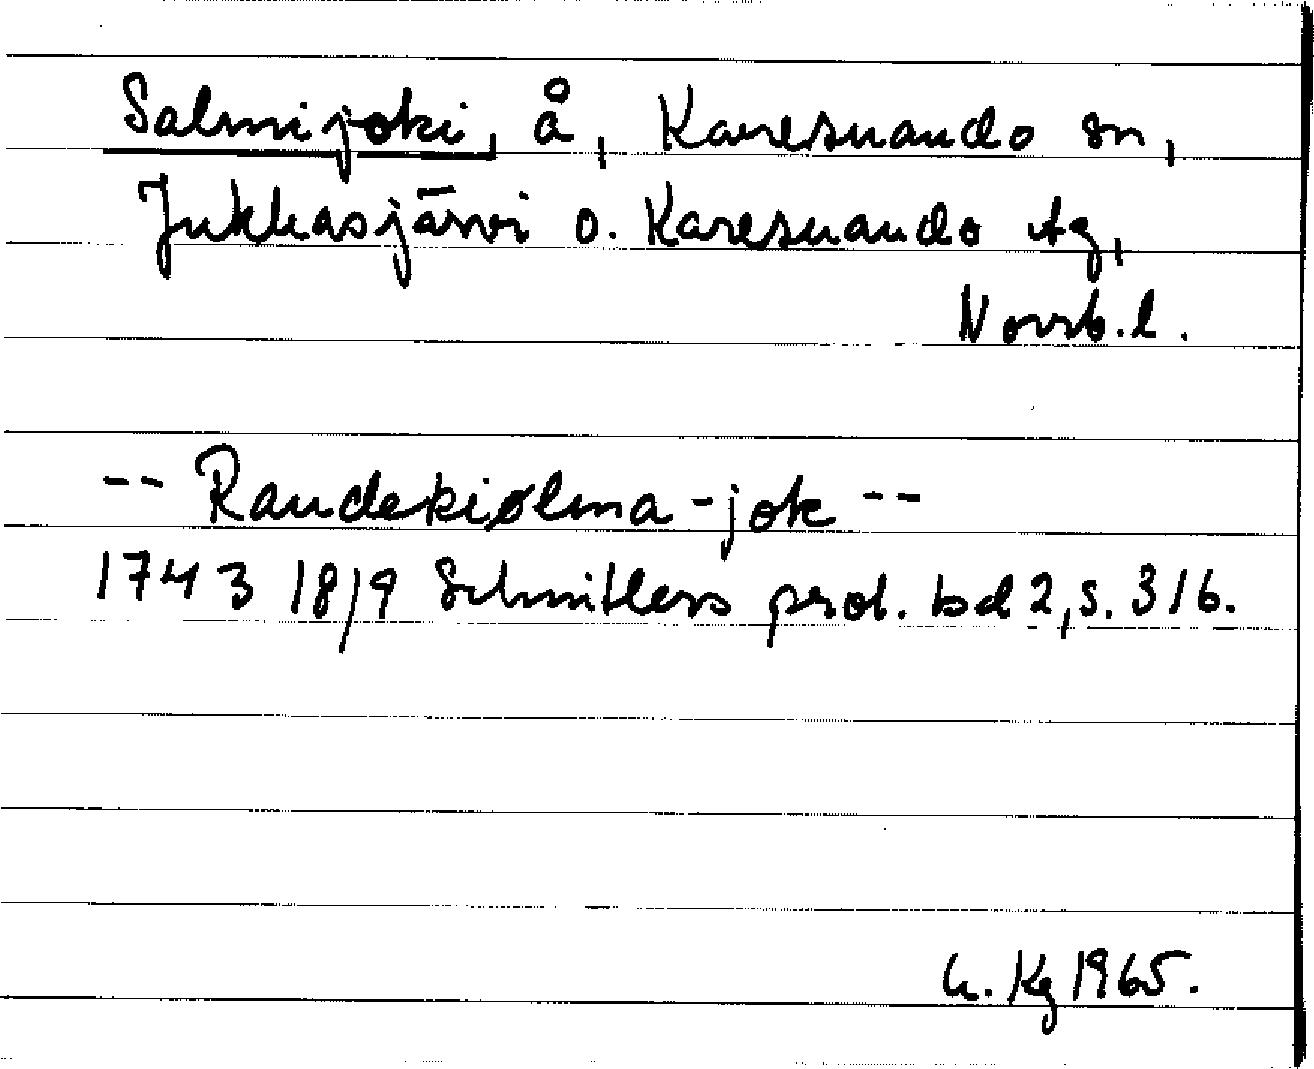 Salmijoki, å, Karesuando sn,
Jukkasjärvi o. Karesuando tg,
Norrb. l.
-- Raudekiølma-jok --
1743 18/9 Schnitlers prot. bd 2, s. 316.
G. Kg 1965.